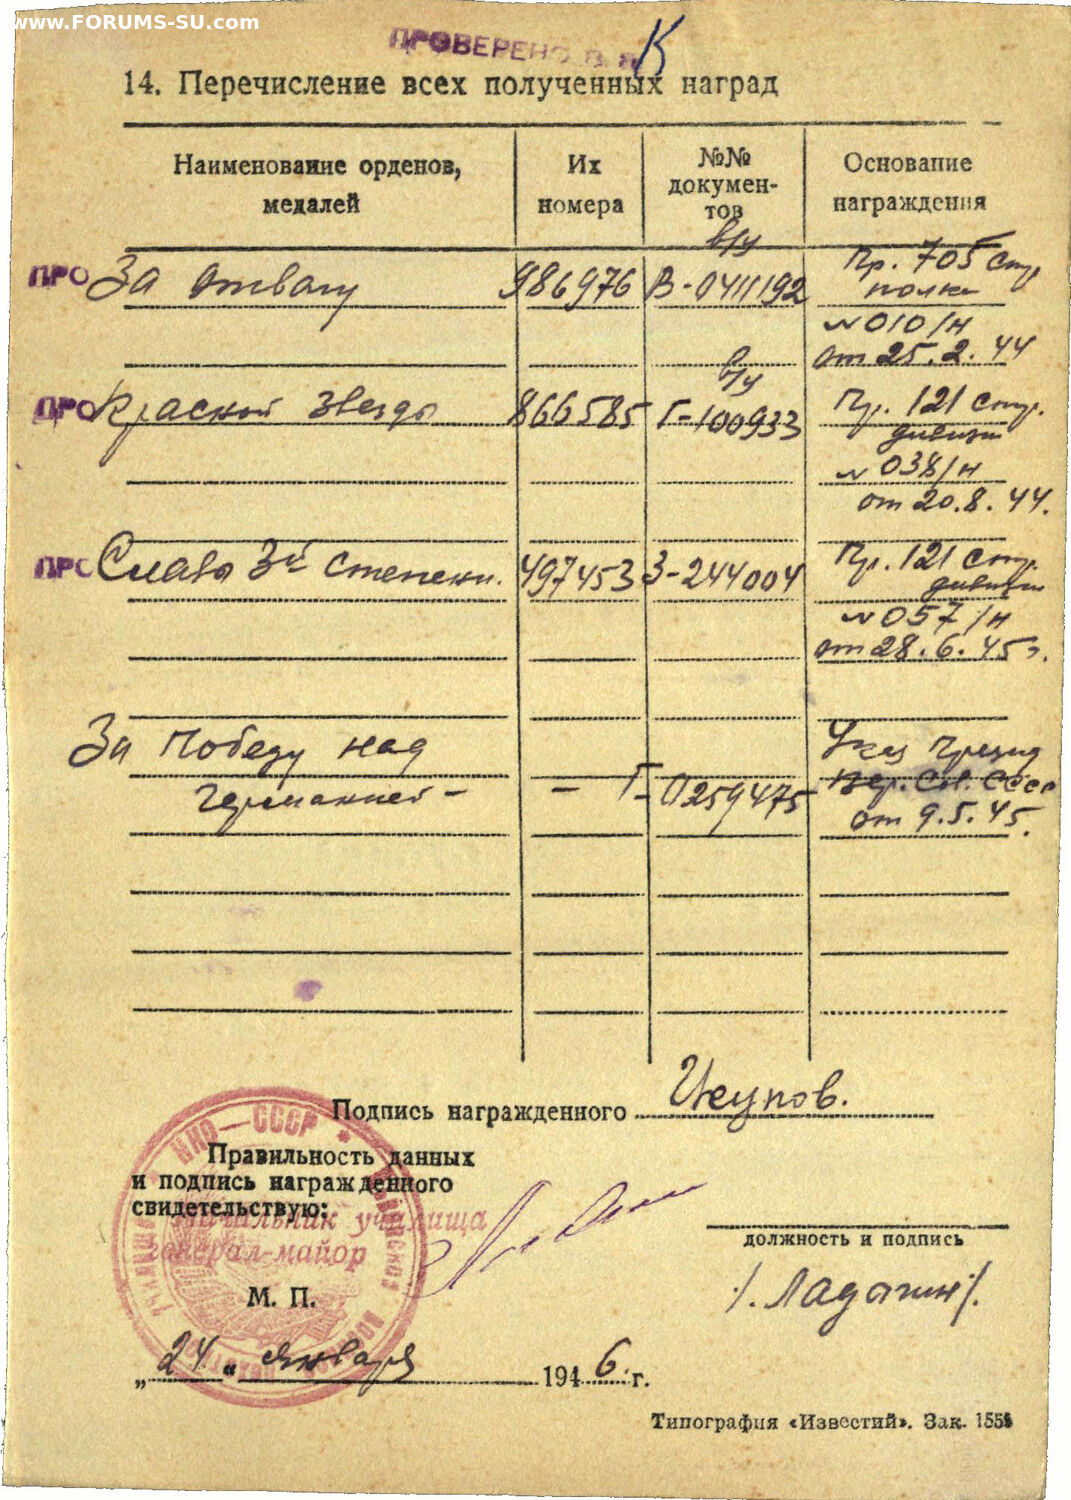 www.FORUMS-SU.com
ПРОВЕРЕНО
14. Перечисление всех полученных наград
Наименование орденов, медалей
Их номера
№№ документов
Основание награждения
ПРО За отвагу 986976 в/у В-0411192 Пр. 705 стр. полка
№ 010/н
от 25.2.44
ПРО Красной звезды 866585 в/у Г-100933 Пр. 121 стр. дивизии
№ 038/н
от 20.8.44.
ПРО Славы 3й степени. 497453 З-244004 Пр. 121 стр. дивизии
№ 057/н
от 28.6.45г.
За Победу над Германией - – Г-0259475 Указ Презид
Вер. Сов. СССР
от 9.5.45.
Подпись награжденного
Правильность данных
и подпись награжденного
свидетельствую:
Начальник училища
генерал-майор
НКО — СССР
должность и подпись
М. П.
„24“ января 1946 г.
Типография «Известий». Зак. 1558